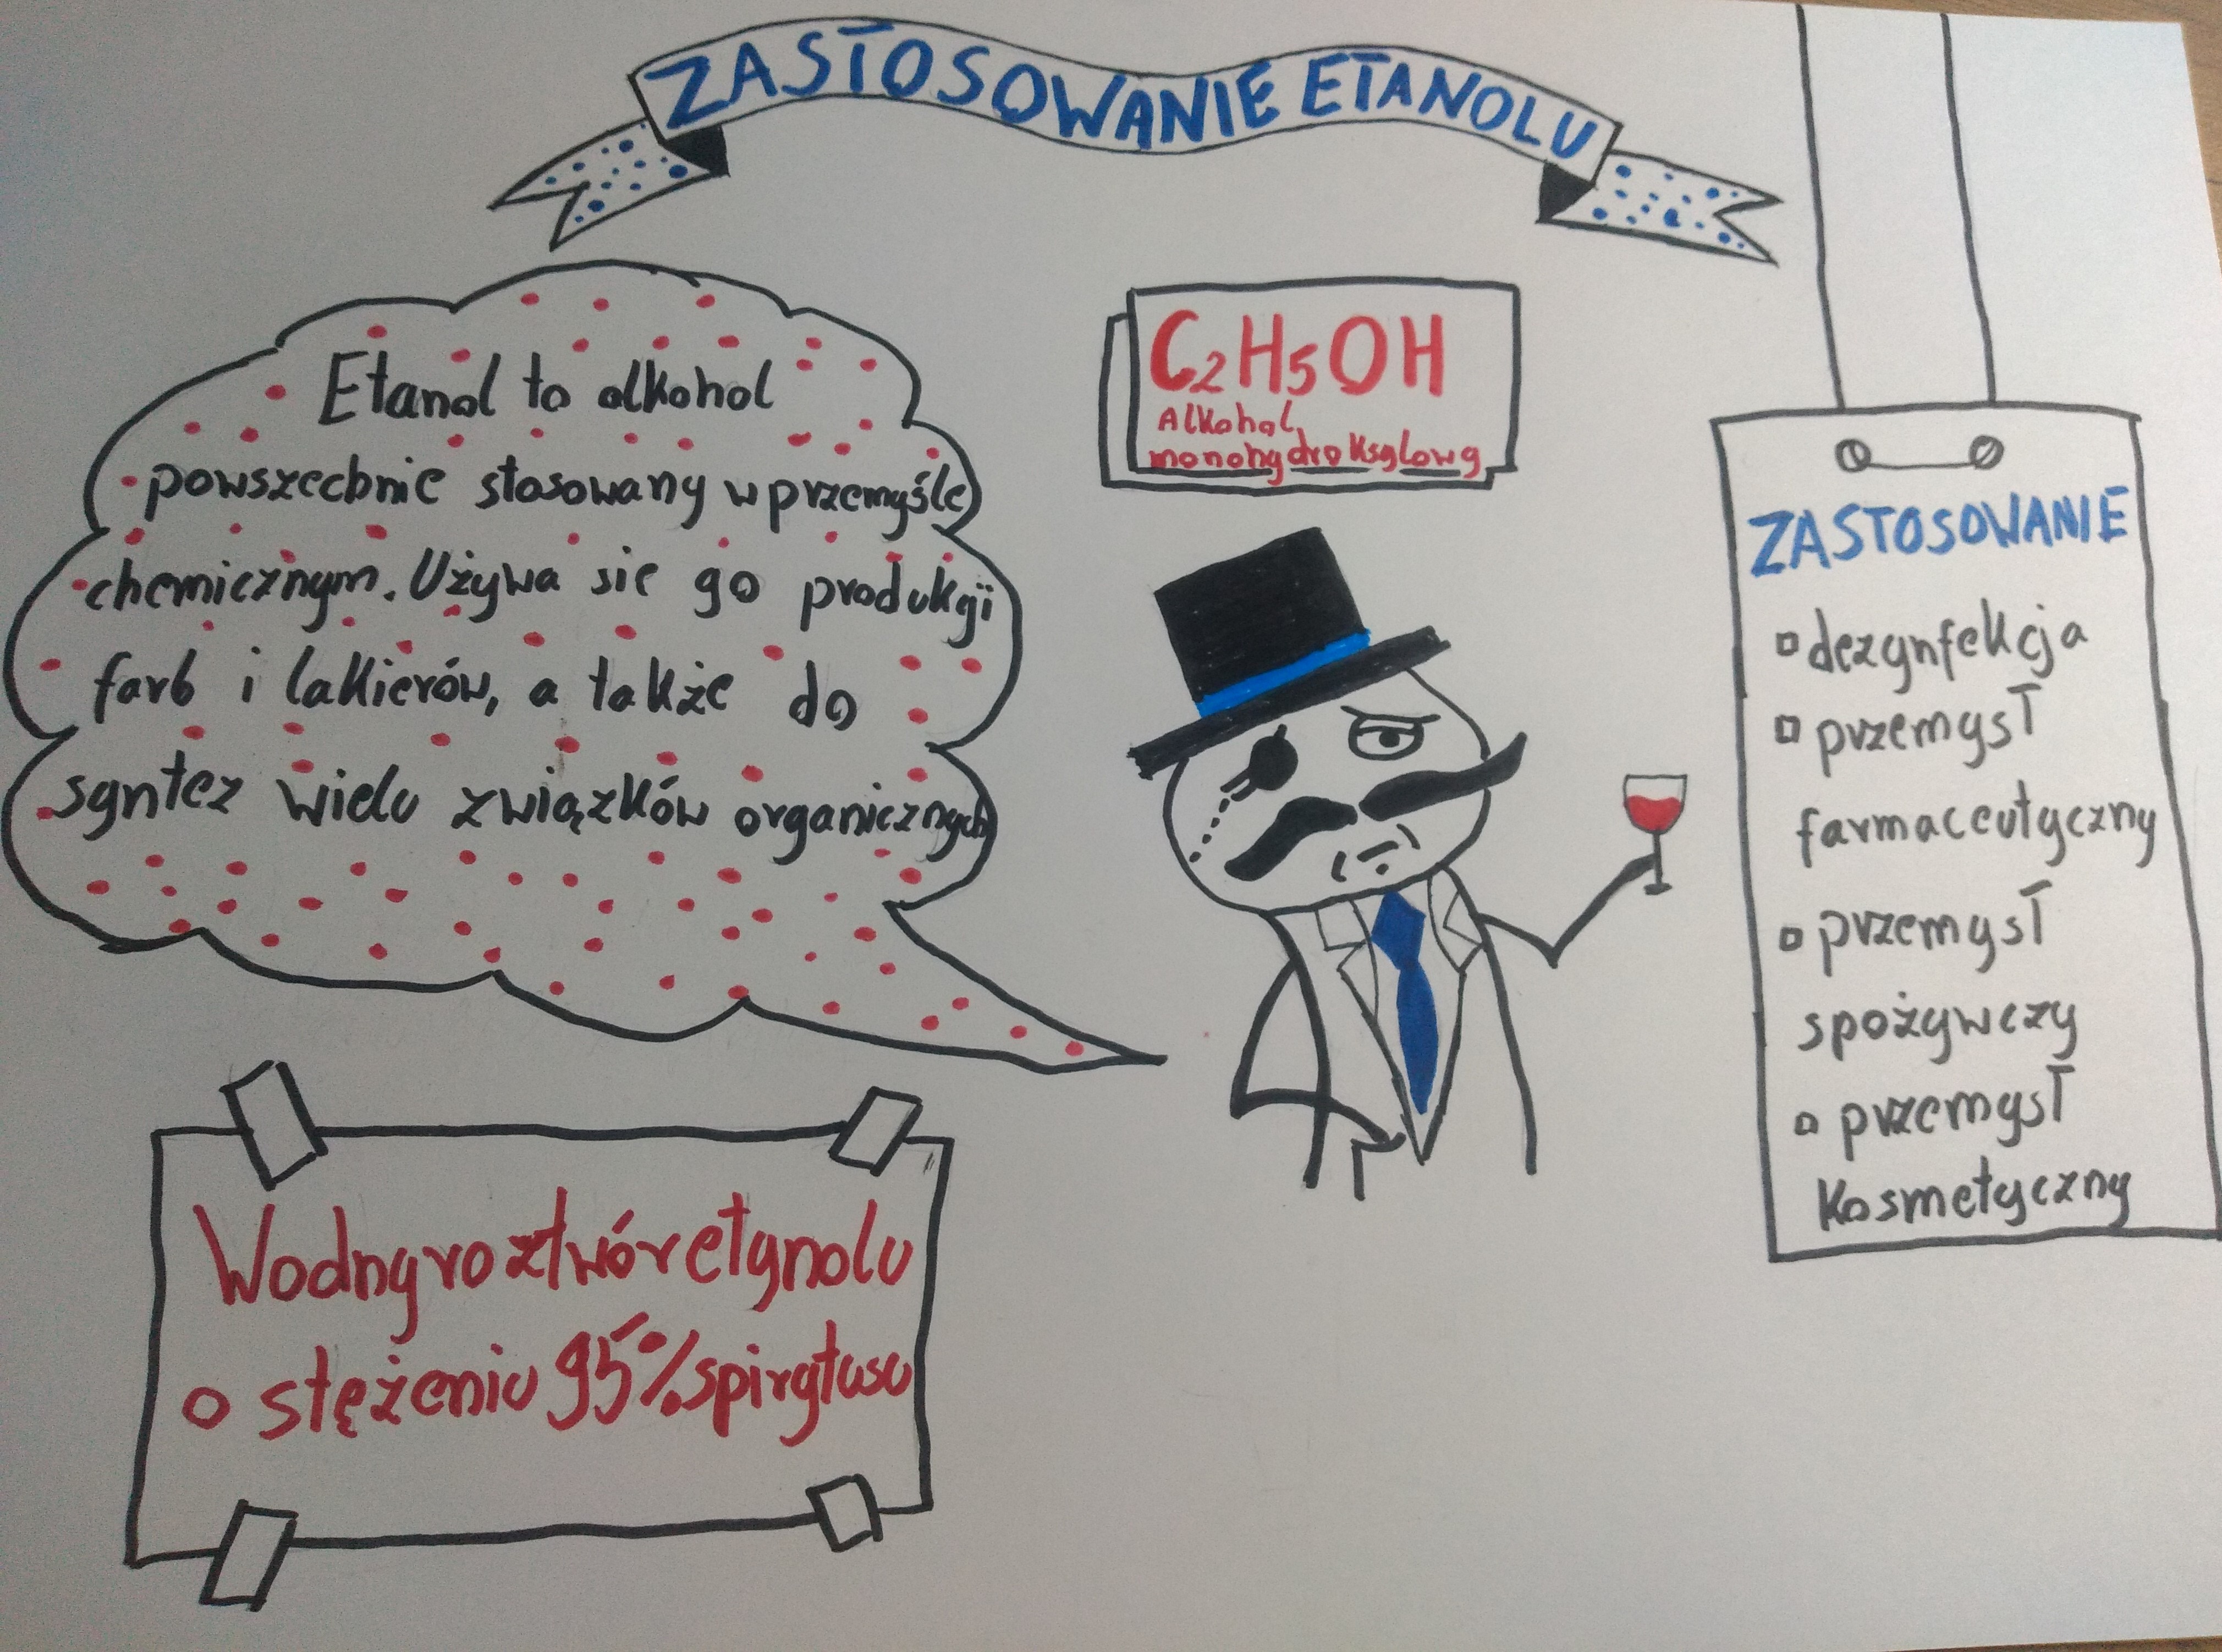 ZASTOSOWANIE ETANOLU
Etanol to alkohol
powszechnie stosowany w przemyśle
chemicznym. Używa sie go produkcji
farb i lakierów, a także do
syntez wielu związków organicznych
C2H5OH
Alkohol
monohydroksylowy
ZASTOSOWANIE
dezynfekcja
przemysł
farmaceutyczny
przemysł
spożywczy
przemysł
kosmetyczny
Wodny roztwór etynolu
o stężeniu 95% spirytusu